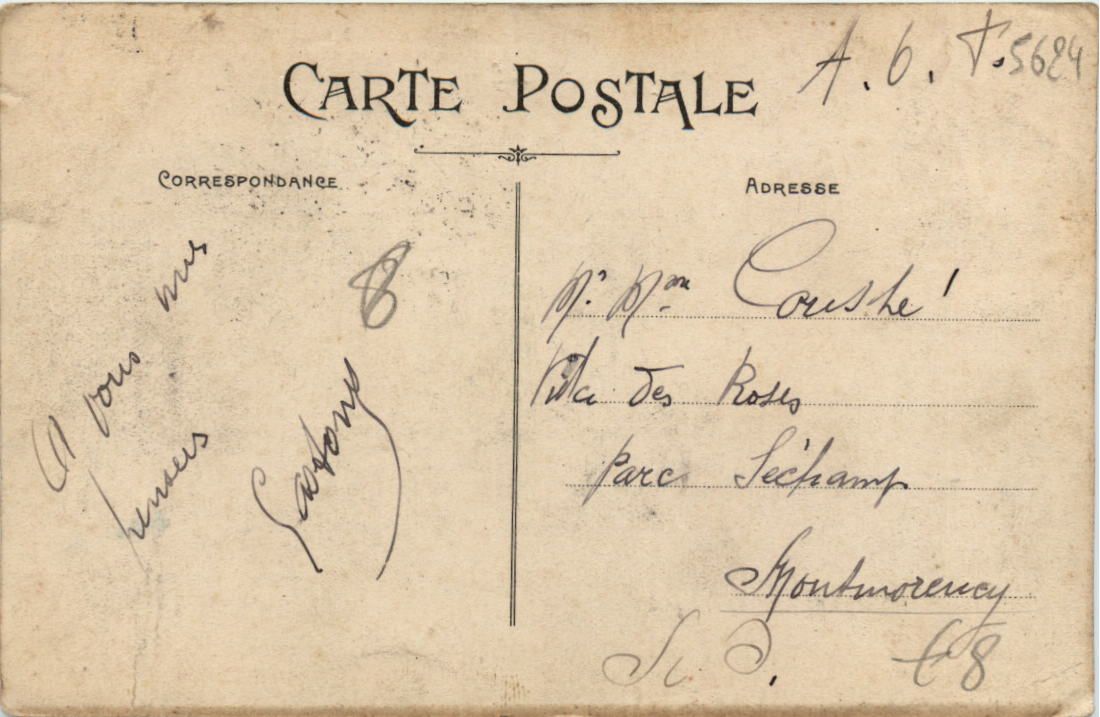 CARTE POSTALE
A. 6. T. 5624
CORRESPONDANCE
ADRESSE
A vous mes
pensées
Gaston
8
Mr Mme Coushé
Villa des Roses
Parc Séchamp
Montmorency
S. O.
t8